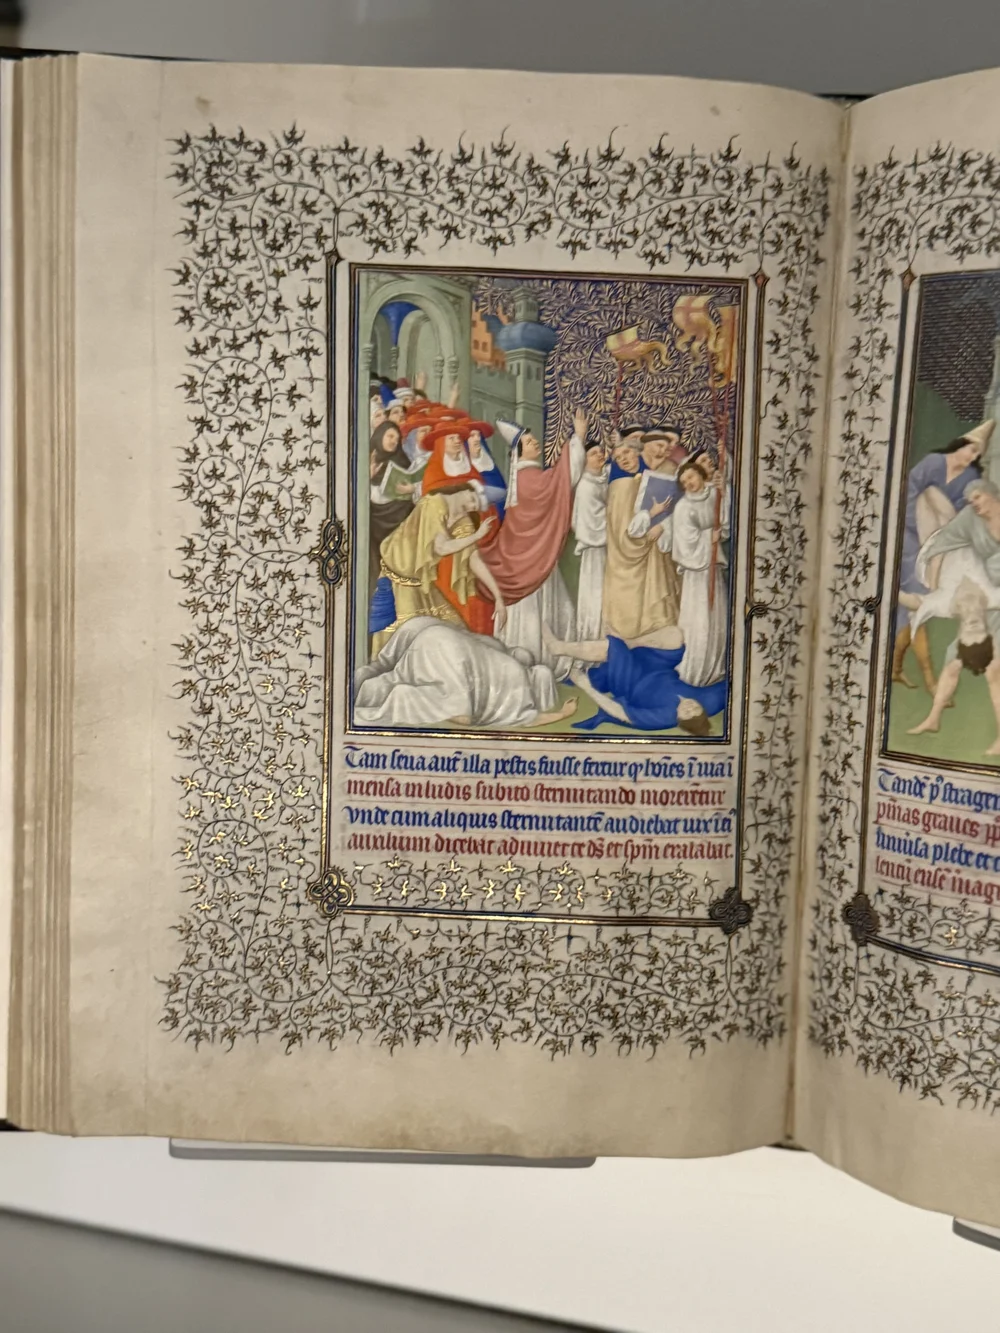 Tam seua aut̄ illa pestis fuisse fertur ꝙ hoīes ī uia ī
mensa in ludis subito sternutando morerētur
vnde cum aliquis sternutantē audiebat
auxilium dicebat adiuuet te ds̄ et spm̄ exalabat.
Tandē p̄ strage
graues
plebe et